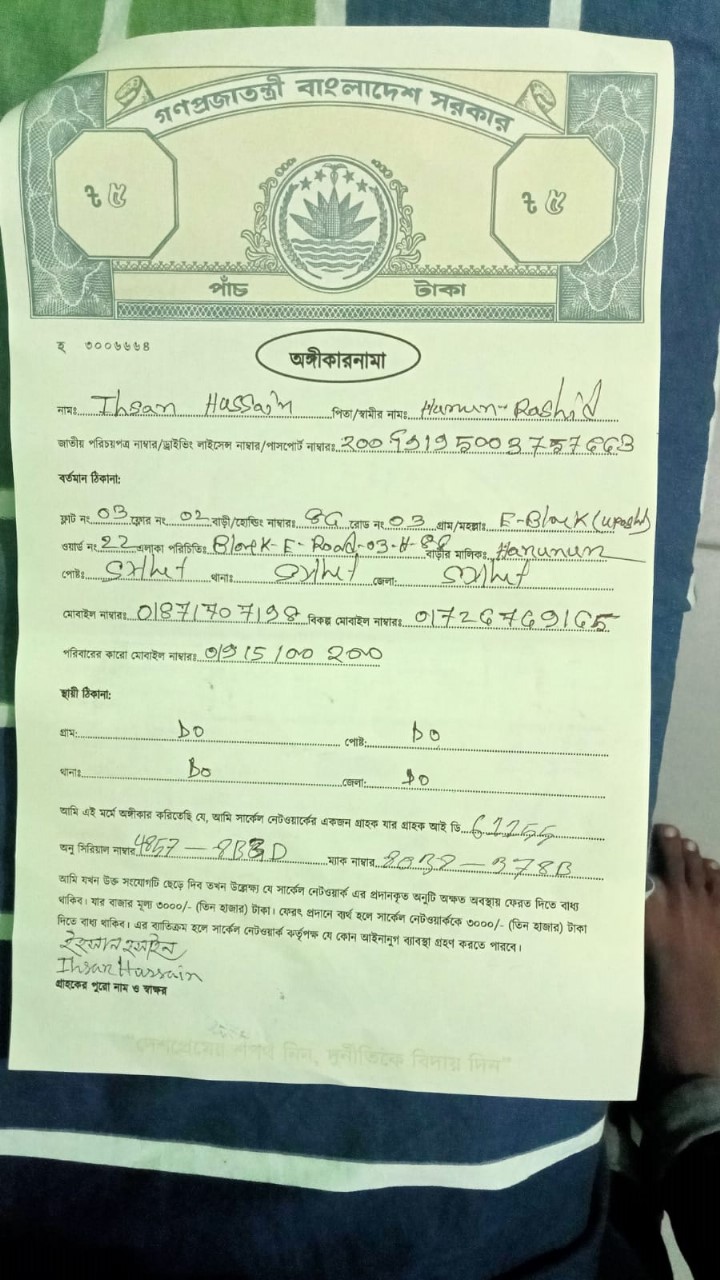 গণপ্রজাতন্ত্রী বাংলাদেশ সরকার
৳ ৫ ৳ ৫
পাঁচ টাকা
হ ৩০০৬৬৬৪
অঙ্গীকারনামা
নামঃ Ihsan Hassain পিতা/স্বামীর নামঃ Harun-Rashid
জাতীয় পরিচয়পত্র নাম্বার/ড্রাইভিং লাইসেন্স নাম্বার/পাসপোর্ট নাম্বারঃ
বর্তমান ঠিকানা:
ফ্লাট নং 03 ফ্লোর নং 02 বাড়ী/হোল্ডিং নাম্বারঃ রোড নং 03 গ্রাম/মহল্লাঃ E-Block
ওয়ার্ড নং 22 এলাকা পরিচিতিঃ Block-E-Road-03-H- বাড়ীর মালিকঃ
পোষ্টঃ Sylhet থানাঃ Sylhet জেলা: Sylhet
মোবাইল নাম্বারঃ 01871707198 বিকল্প মোবাইল নাম্বারঃ 01726769165
পরিবারের কারো মোবাইল নাম্বারঃ 01915100200
স্থায়ী ঠিকানা:
গ্রাম: Do পোষ্ট: Do
থানাঃ Do জেলা: Do
আমি এই মর্মে অঙ্গীকার করিতেছি যে, আমি সার্কেল নেটওয়ার্কের একজন গ্রাহক যার গ্রাহক আই ডি
অনু সিরিয়াল নাম্বার ম্যাক নাম্বার
আমি যখন উক্ত সংযোগটি ছেড়ে দিব তখন উল্লেক্ষ্য যে সার্কেল নেটওয়ার্ক এর প্রদানকৃত অনুটি অক্ষত অবস্থায় ফেরত দিতে বাধ্য
থাকিব। যার বাজার মূল্য ৩০০০/- (তিন হাজার) টাকা। ফেরৎ প্রদানে ব্যর্থ হলে সার্কেল নেটওয়ার্ককে ৩০০০/- (তিন হাজার) টাকা
দিতে বাধ্য থাকিব। এর ব্যতিক্রম হলে সার্কেল নেটওয়ার্ক কর্তৃপক্ষ যে কোন আইনানুগ ব্যবস্থা গ্রহণ করতে পারবে।
ইহসান হুসাইন
Ihsan Hassain
গ্রাহকের পুরো নাম ও স্বাক্ষর
"দেশপ্রেমের শপথ নিন, দুর্নীতিকে বিদায় দিন"